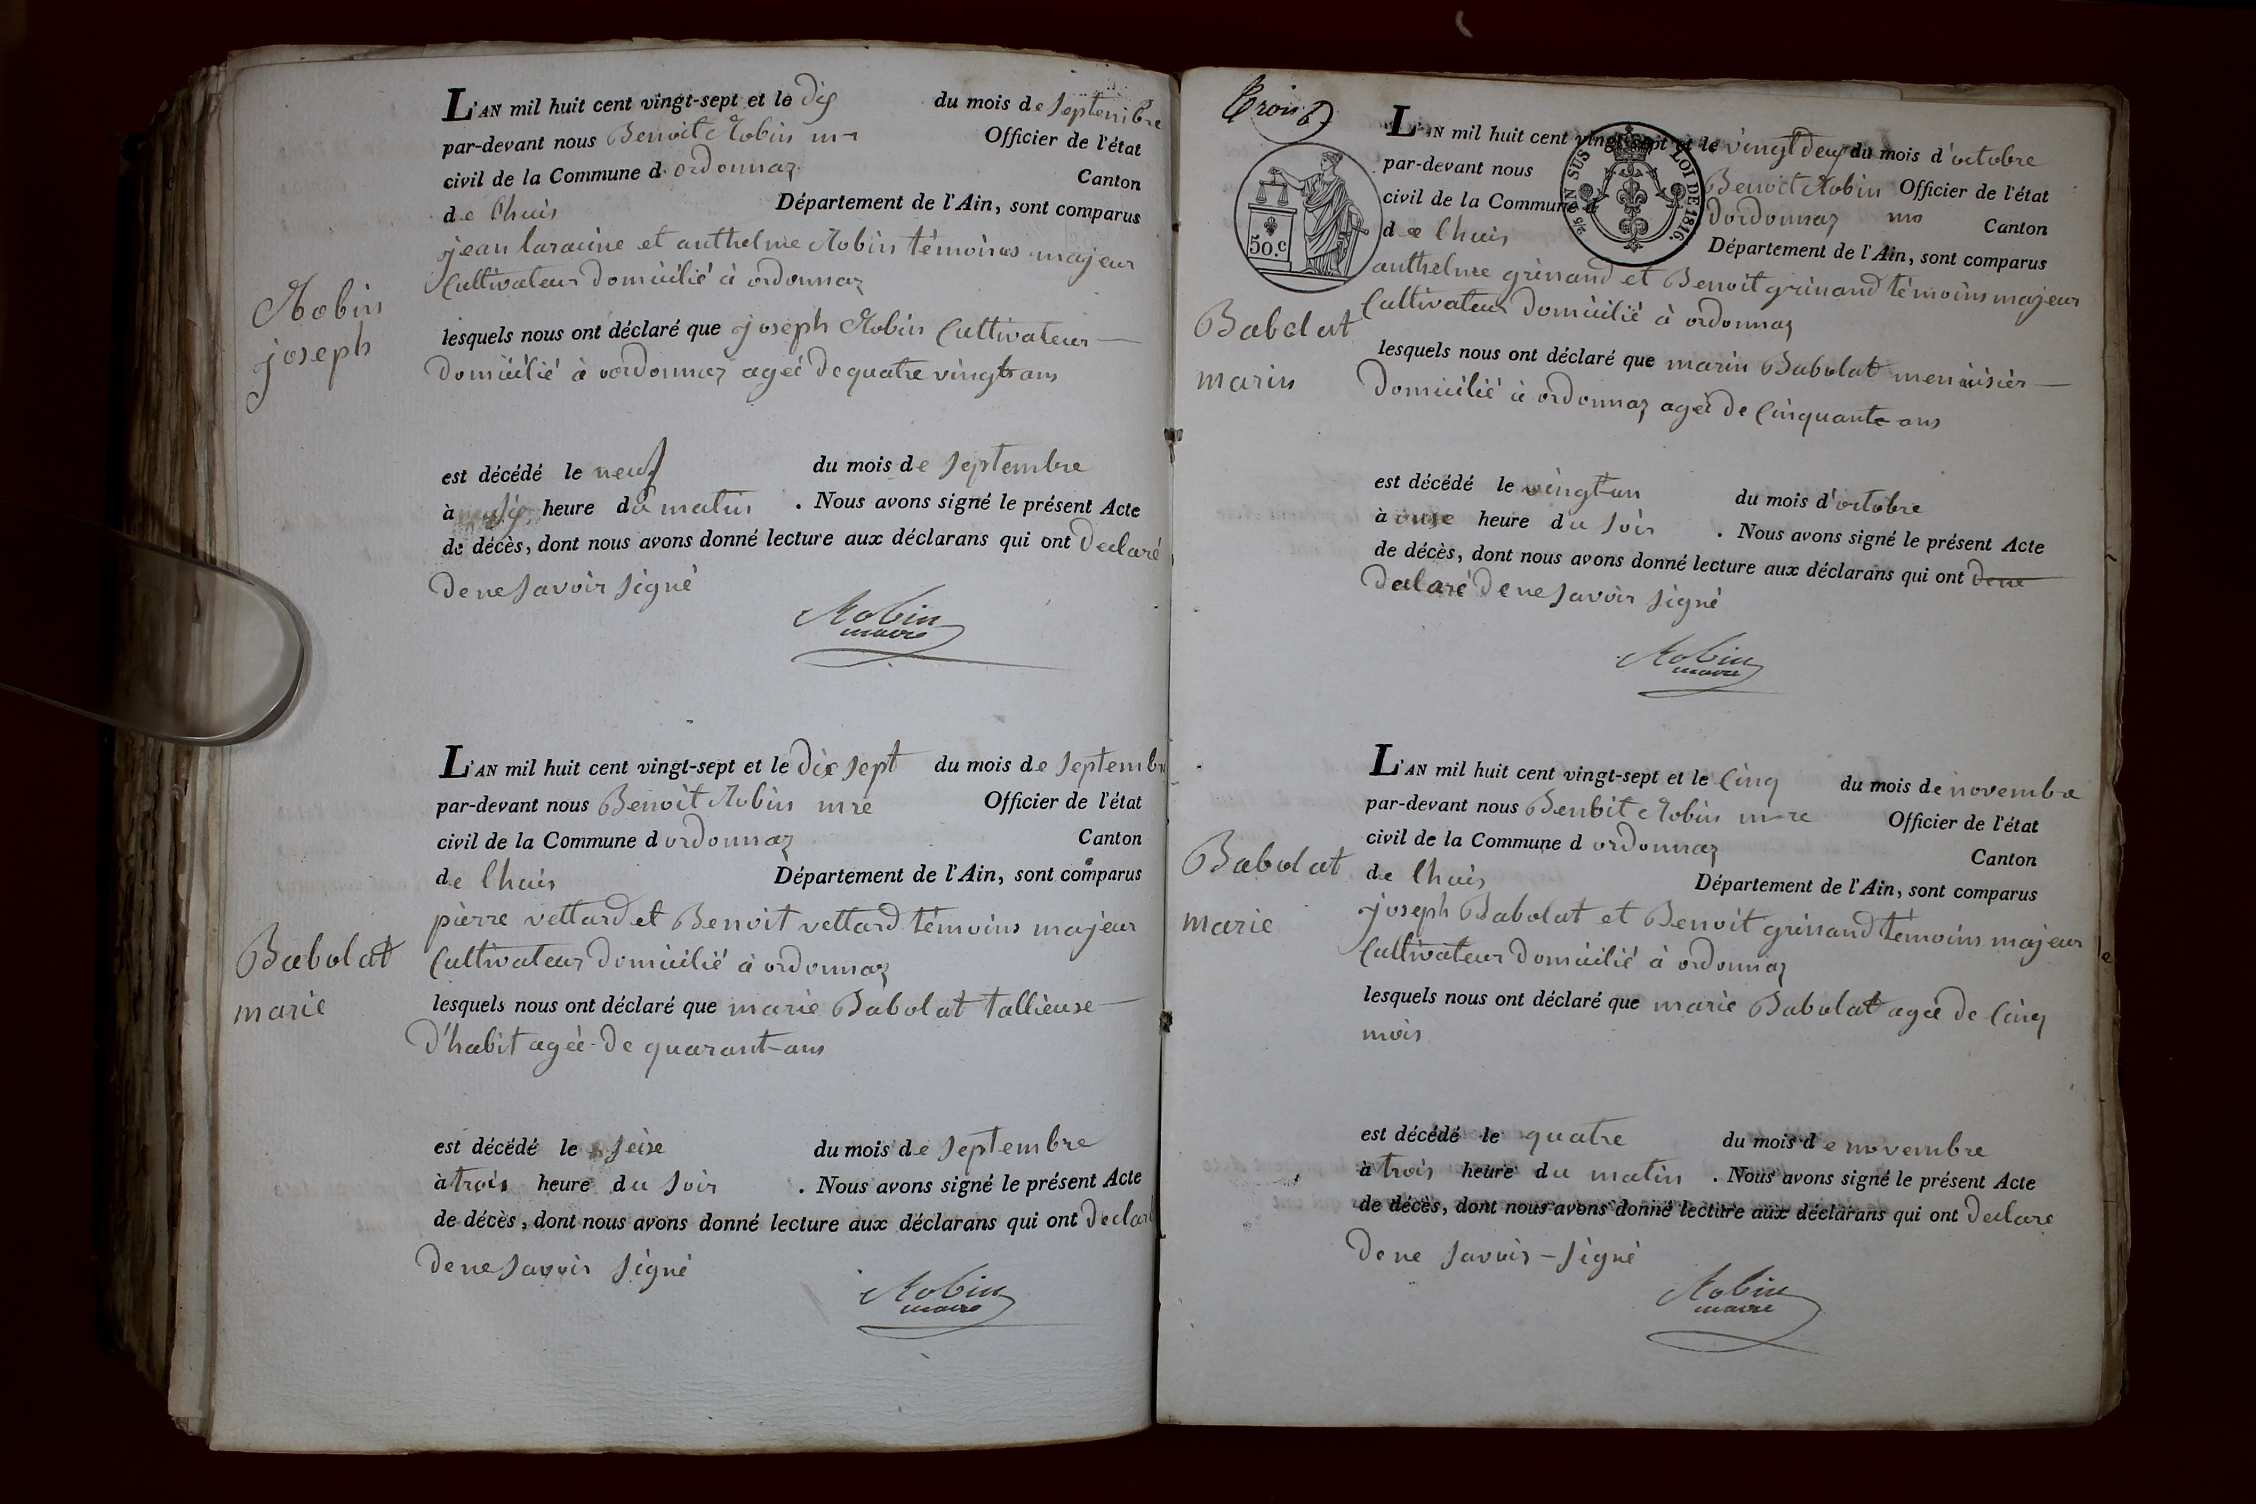 L'AN mil huit cent vingt-sept et le dix du mois de septembre
par-devant nous Benoit Robin mre Officier de l'état
civil de la Commune d ordonnaz Canton
de lhuis Département de l'Ain, sont comparus
jean laracine et anthelme Robin témoins majeur
Cultivateur domicilié à ordonnaz
Robin
joseph
lesquels nous ont déclaré que joseph Robin Cultivateur
domicilié à ordonnaz ageé de quatre vingts ans
est décédé le neuf du mois de septembre
à six heure du matin . Nous avons signé le présent Acte
de décès, dont nous avons donné lecture aux déclarans qui ont declaré
de ne savoir signé
Robin
maire
L'AN mil huit cent vingt-sept et le dix sept du mois de septembre
par-devant nous Benoit Robin mre Officier de l'état
civil de la Commune d ordonnaz Canton
de lhuis Département de l'Ain, sont comparus
pierre vettard et Benoit vettard témoins majeur
Babolat
marie
Cultivateur domicilié à ordonnaz
lesquels nous ont déclaré que marie Babolat tallieuse
d'habit ageé de quarant ans
est décédé le seise du mois de septembre
à trois heure du soir . Nous avons signé le présent Acte
de décès, dont nous avons donné lecture aux déclarans qui ont declaré
de ne savoir signé
Robin
maire
trois
50.C
EN SUS
LOI DE 1816.
L'AN mil huit cent vingt-sept et le vingt deux du mois d'octobre
par-devant nous Benoit Robin Officier de l'état
civil de la Commune d dordonnaz Canton
de lhuis Département de l'Ain, sont comparus
anthelme grinand et Benoit grinand témoins majeur
Cultivateur domicilié à ordonnaz
Babolat
marin
lesquels nous ont déclaré que marin Babolat menuisier
domicilié à ordonnaz ageé de Cinquante ans
est décédé le vingt un du mois d'octobre
à onse heure du soir . Nous avons signé le présent Acte
de décès, dont nous avons donné lecture aux déclarans qui ont de ne
declaré de ne savoir signé
Robin
maire
L'AN mil huit cent vingt-sept et le Cinq du mois de novembre
par-devant nous Benoit Robin mre Officier de l'état
civil de la Commune d ordonnaz Canton
de lhuis Département de l'Ain, sont comparus
Babolat
marie
joseph Babolat et Benoit grinand témoins majeur
Cultivateur domicilié à ordonnaz
lesquels nous ont déclaré que marie Babolat ageé de Cinq
mois
est décédé le quatre du mois de novembre
à trois heure du matin . Nous avons signé le présent Acte
de décès, dont nous avons donné lecture aux déclarans qui ont declaré
de ne savoir - signé
Robin
maire